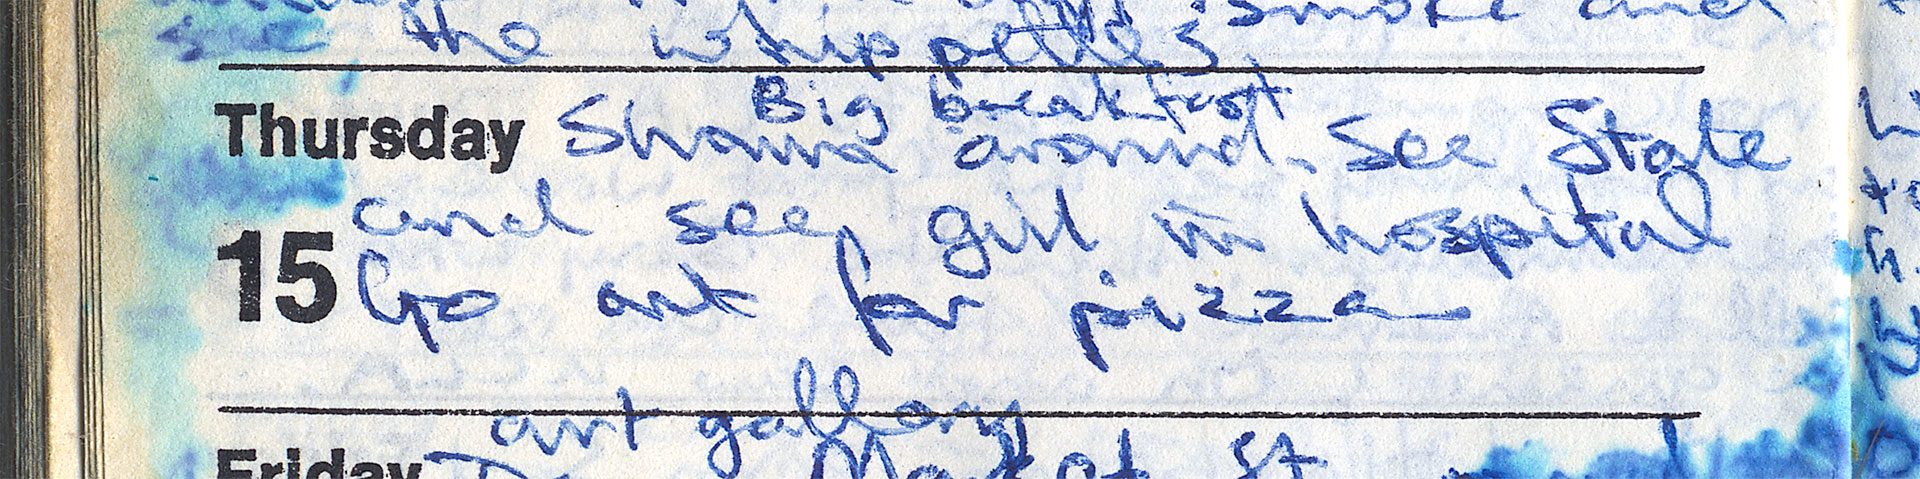 smoke and
the whippettes
Big breakfast
Thursday Shawna around. See State
and see girl in hospital
15 Go out for pizza
art gallery
Friday Market St